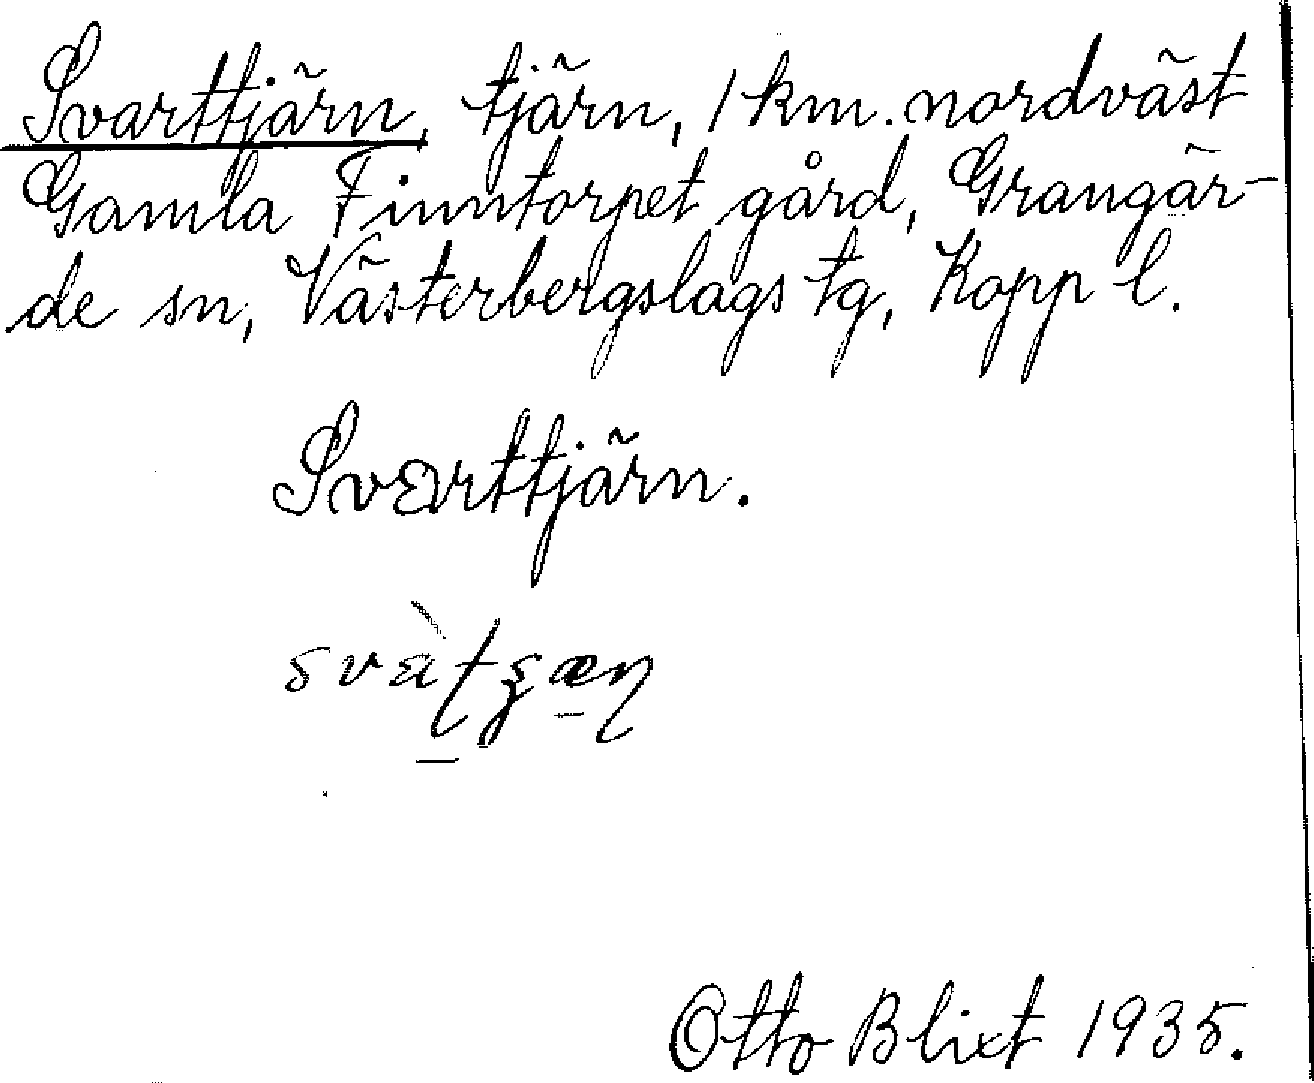 Svarttjärn, tjärn, 1 km. nordväst
Gamla Finntorpet gård, Grangär-
de sn, Västerbergslags tg, Kopp l.
Svarttjärn.
Otto Blixt 1935.